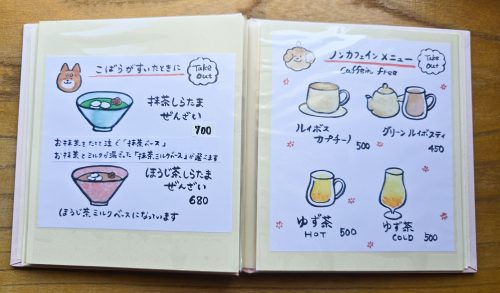 こばらがすいたときに
Take Out
抹茶しらたま
ぜんざい
700
お抹茶をたてて注ぐ「抹茶ベース」
お抹茶とミルクが混ざった「抹茶ミルクベース」が選べます
ほうじ茶しらたま
ぜんざい
680
ほうじ茶ミルクベースになっています
ノンカフェインメニュー
Caffein free
Take Out
ルイボス
カプチーノ 500
グリーンルイボスティ
450
ゆず茶
HOT 500
ゆず茶
COLD 500